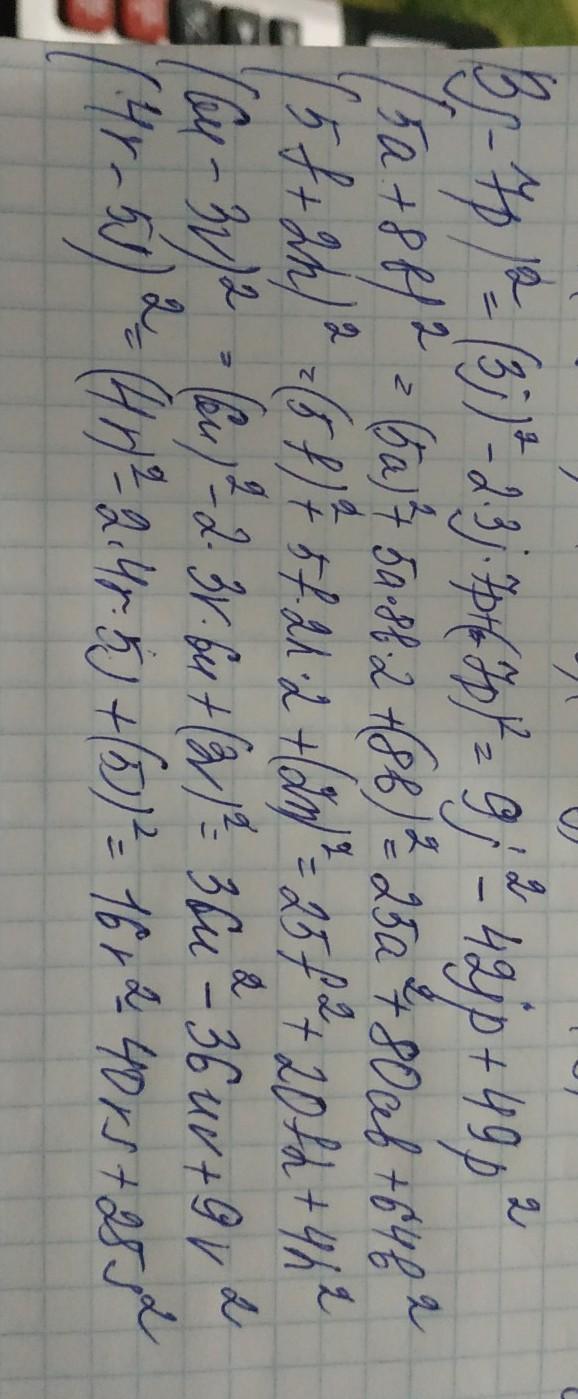 (3j - 7p)² = (3j)² - 2·3j·7p + (7p)² = 9j² - 42jp + 49p²
(5a + 8b)² = (5a)² + 5a·8b·2 + (8b)² = 25a² + 80ab + 64b²
(5f + 2h)² = (5f)² + 5f·2h·2 + (2h)² = 25f² + 20fh + 4h²
(6u - 3v)² = (6u)² - 2·3v·6u + (3v)² = 36u² - 36uv + 9v²
(4r - 5s)² = (4r)² - 2·4r·5s + (5s)² = 16r² - 40rs + 25s²